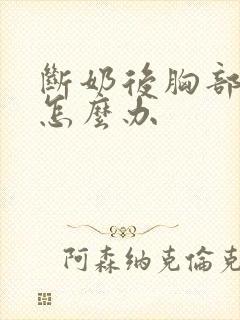 斷奶後胸部
怎麼办
阿森纳克倫克